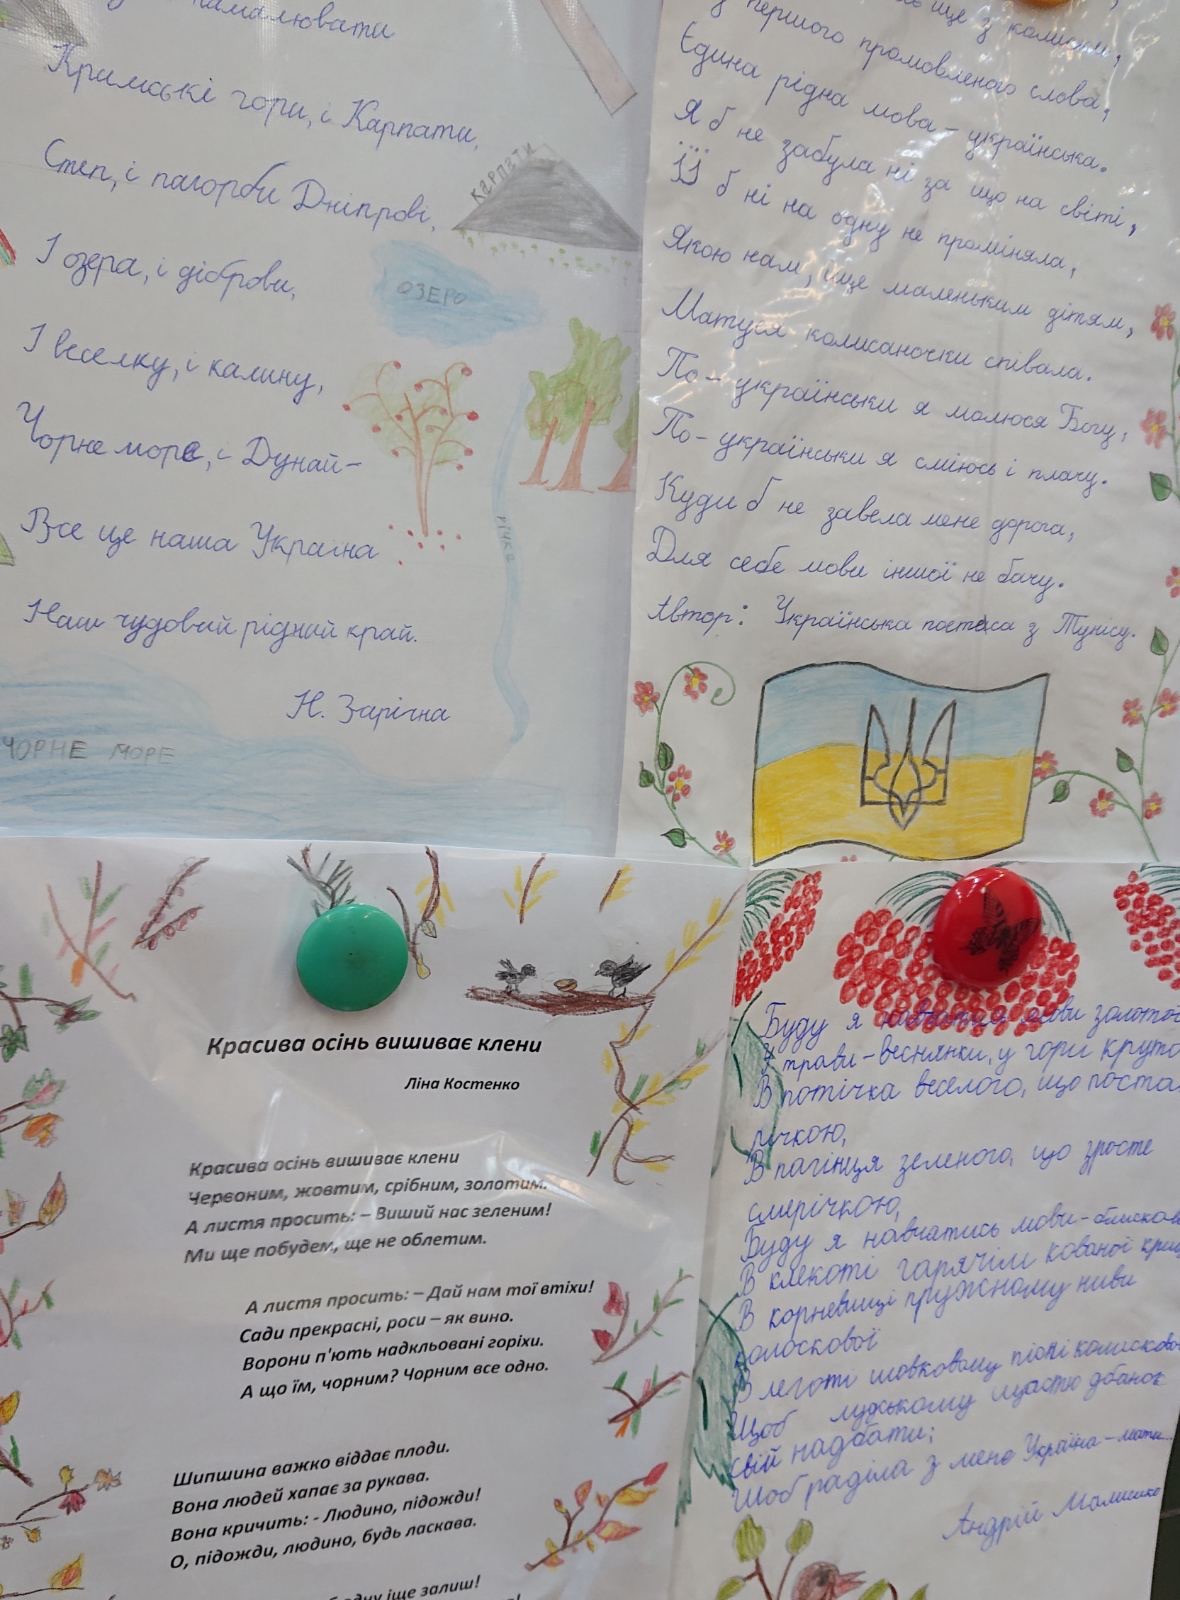 намалювати
Кримські гори, і Карпати,
Степ, і пагорби Дніпрові,
І озера, і діброви,
І веселку, і калину,
Чорне море, і Дунай –
Все це наша Україна
Наш чудовий рідний край.
Н. Зарічна
КАРПАТИ
ОЗЕРО
РІЧКА
ЧОРНЕ МОРЕ
ще з колиски,
З першого промовленого слова,
Єдина рідна мова – українська.
Я б не забула ні за що на світі,
Її б ні на одну не проміняла,
Якою нам, іще маленьким дітям,
Матуся колисаночки співала.
По - українськи я молюся Богу,
По - українськи я сміюсь і плачу.
Куди б не завела мене дорога,
Для себе мови іншої не бачу.
Автор: Українська поетеса з Тунісу.
Красива осінь вишиває клени
Ліна Костенко
Красива осінь вишиває клени
Червоним, жовтим, срібним, золотим.
А листя просить: – Виший нас зеленим!
Ми ще побудем, ще не облетим.
А листя просить: – Дай нам тої втіхи!
Сади прекрасні, роси – як вино.
Ворони п'ють надкльовані горіхи.
А що їм, чорним? Чорним все одно.
Шипшина важко віддає плоди.
Вона людей хапає за рукава.
Вона кричить: - Людино, підожди!
О, підожди, людино, будь ласкава.
іще залиш!
Буду я навчатись мови золотої
У трави – веснянки, у гори крутої
В потічка веселого, що постане
річкою,
В пагінця зеленого, що зросте
смерічкою,
Буду я навчатись мови – блискав
В клекоті гарячім кованої криц
В корневищі пружному ниви
колоскової
В леготі шовковому пісні колискової
Щоб людському щастю дбанок
свій надбати;
Щоб раділа з мене Україна – мати...
Андрій Малишко